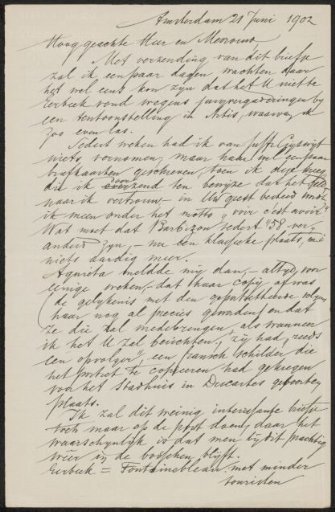 Amsterdam 21 Juni 1902
Hoog geachte Heer en Mevrouw
Met verzending van dit briefje
zal ik een paar dagen wachten daar
het wel eens kon zijn dat het U niet te
Eerbeek vond wegens juryvergaderingen bij
een tentoonstelling in Artis, waarvan ik
zoo even las.
Sedert weken had ik van Juffr.
niets vernomen, maar haar wel een paar
briefkaarten geschreven, toen ik deze kreeg
die ik ten bewijze dat het
waar ik vertrouw in Uw gunst bedient
ik meen onder het motto "voir c'est avoir"
Wat moet dat Barbizon sedert '59 ver-
anderd zijn, nu den klassieke plaats,
niets aardig meer.
Agneta meldde mij dan, altijd voor
eenige weken, dat haar copij af was
(de gelijkenis met den
haar nog al precies geworden) en dat
ze die zal medebrengen, als wanneer
ik het U zal berichten, zij had reeds
een opvolger, een fransch schilder die
het portret te copieeren had gekregen
voor het Stadhuis in Descartes geboorte
plaats.
Ik zal dit weinig interessante briefje
toch maar op de post doen, daar het
waarschijnlijk is dat men bij dit prachtig
weer in de bosschen blijft.
Eerbeek = Fontainebleau met minder
touristen